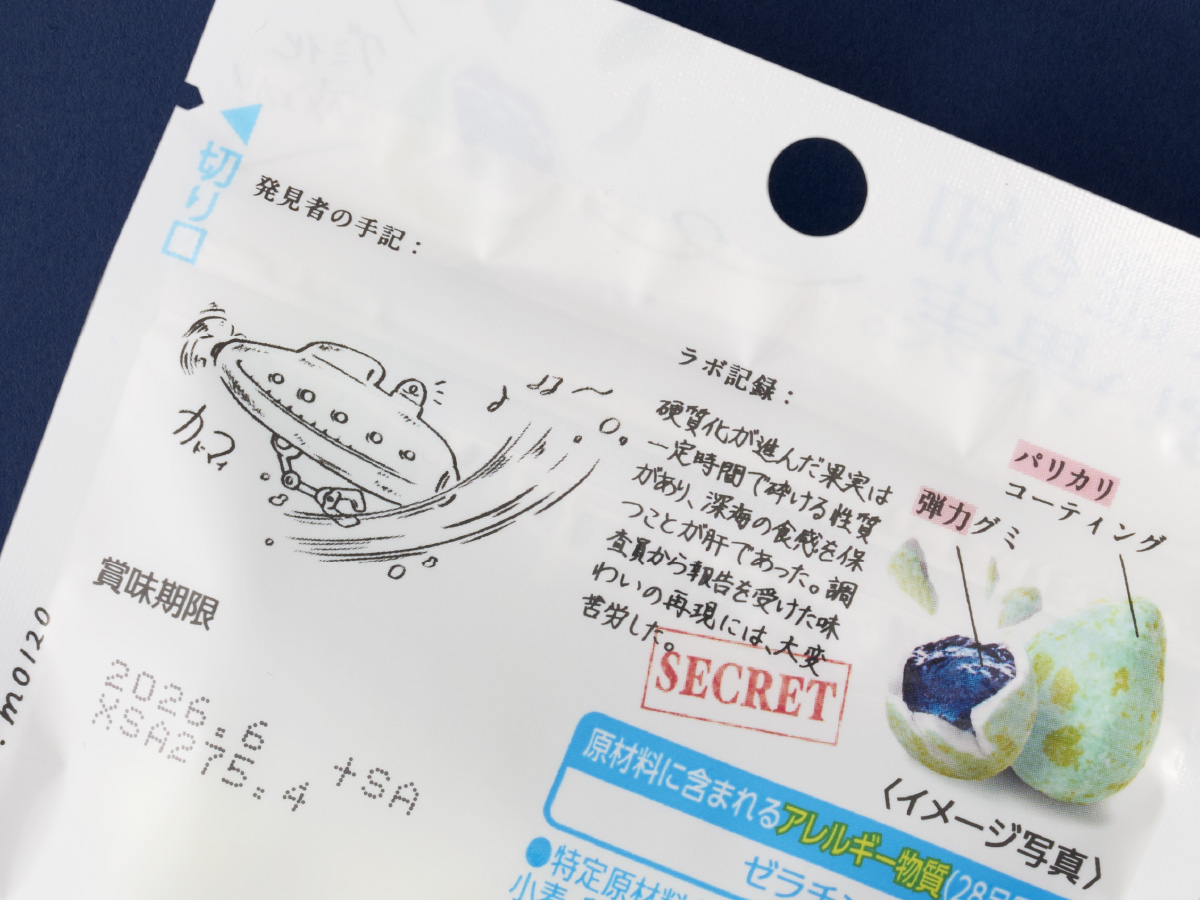 切り口
発見者の手記：
ラボ記録：
硬質化が進んだ果実は
一定時間で砕ける性質
があり、深海の食感を保
つことが肝であった。調
査員から報告を受けた味
わいの再現には、大変
苦労した。
SECRET
パリカリ
コーティング
弾力グミ
〈イメージ写真〉
賞味期限
2026.6
XSA275.4 +SA
.m0120
原材料に含まれるアレルギー物質(28品
ゼラチン
●特定原材料
小麦